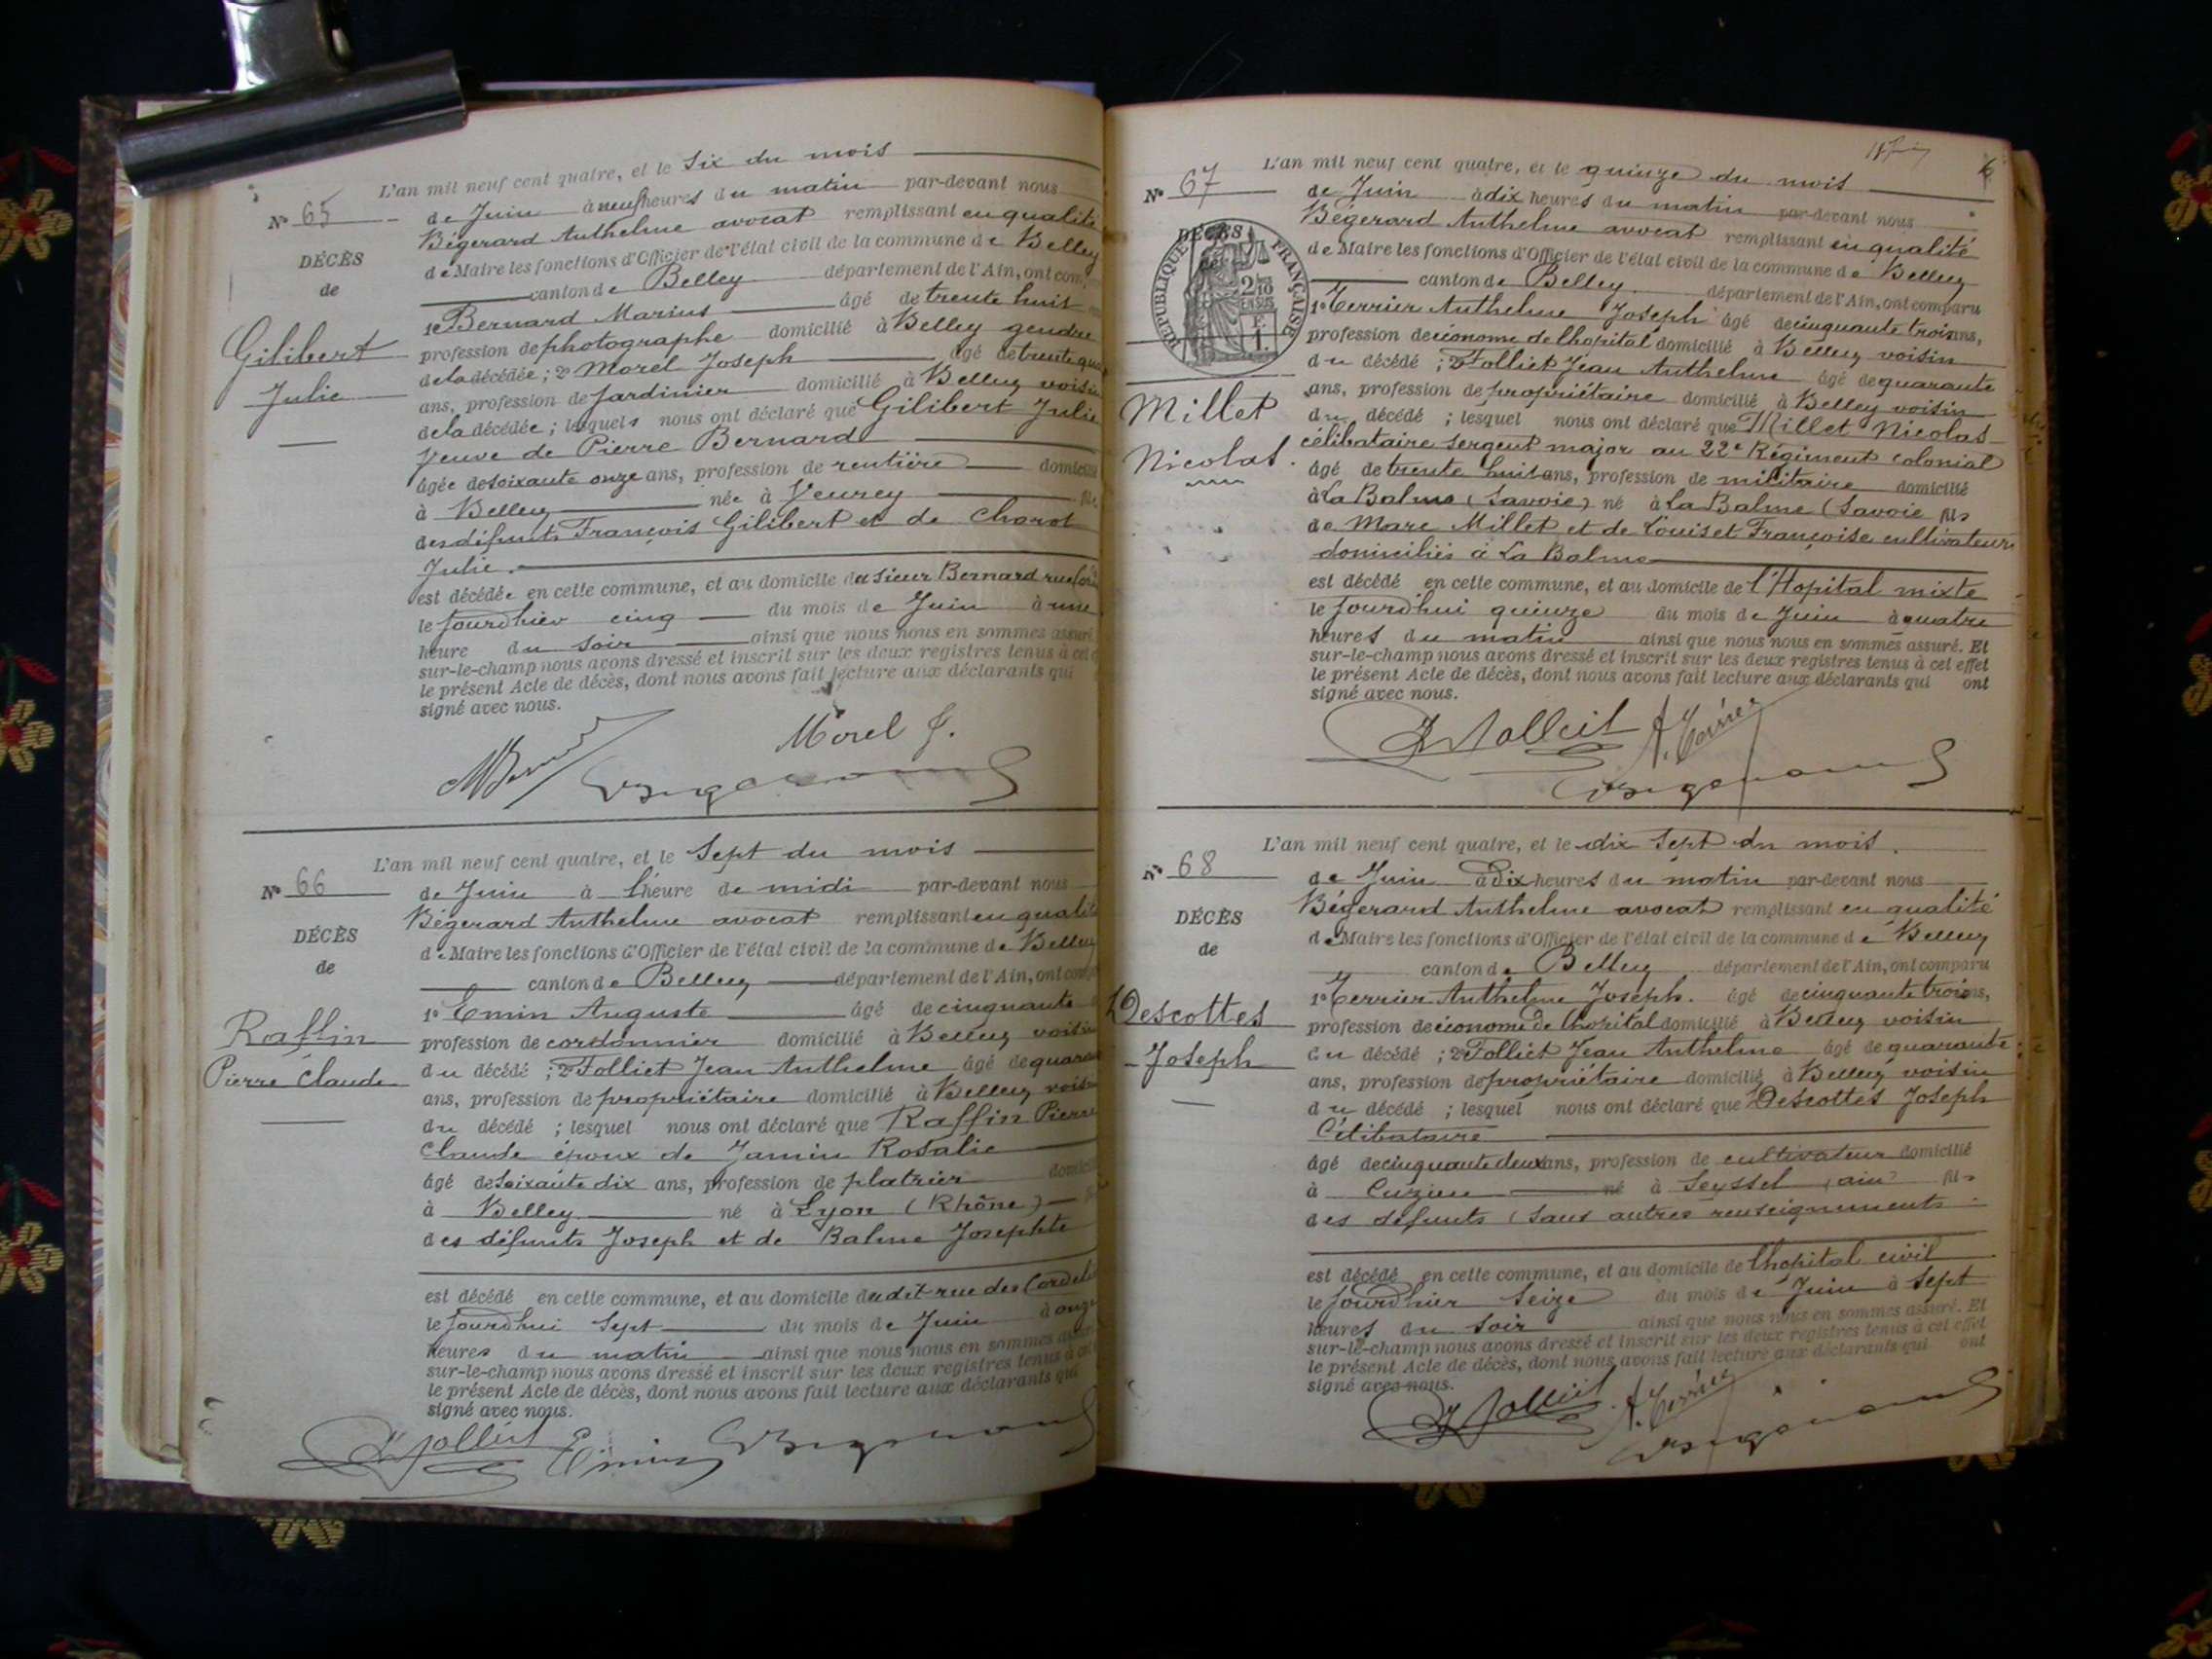 L'an mil neuf cent quatre, et le Six du mois
N° 65
de Juin à neuf heures du matin par-devant nous
Bégerard Anthelme avocat remplissant en qualité
DÉCÈS
de Maire les fonctions d'Officier de l'état civil de la commune de Belley
de
canton de Belley département de l'Ain, ont com
1° Bernard Marius âgé de trente huit
Gilibert
profession de photographe domicilié à Belley gendre
de la décédée ; 2° Morel Joseph âgé de trente qua
Julie
ans, profession de Jardinier domicilié à Belley voisin
de la décédée ; lesquels nous ont déclaré que Gilibert Julie
Veuve de Pierre Bernard
âgée de soixante onze ans, profession de rentière domicilié
à Belley née à Veurey
des défunts François Gilibert et de Charot
Julie.
est décédée en cette commune, et au domicile du sieur Bernard rue
le Jourd'hier cinq du mois de Juin à une
heure du soir ainsi que nous nous en sommes assuré.
sur-le-champ nous avons dressé et inscrit sur les deux registres tenus à cet
le présent Acte de décès, dont nous avons fait lecture aux déclarants qui
signé avec nous.
Morel J.
L'an mil neuf cent quatre, et le Sept du mois
N° 66
de Juin à l'heure de midi par-devant nous
Bégerard Anthelme avocat remplissant en qualité
DÉCÈS
de Maire les fonctions d'Officier de l'état civil de la commune de Belley
de
canton de Belley département de l'Ain, ont comp
1° Emin Auguste âgé de cinquante
Raffin
profession de cordonnier domicilié à Belley voisin
Pierre Claude
du décédé ; 2° Folliet Jean Anthelme âgé de quaran
ans, profession de propriétaire domicilié à Belley voisin
du décédé ; lesquel nous ont déclaré que Raffin Pierre
Claude époux de Jamin Rosalie
âgé de Soixante dix ans, profession de platrier domicil
à Belley né à Lyon (Rhône)
des défunts Joseph et de Balme Josephte
est décédé en cette commune, et au domicile dudit rue des Cordeli
le Jourd'hui Sept du mois de Juin à onze
heures du matin ainsi que nous nous en sommes assuré
sur-le-champ nous avons dressé et inscrit sur les deux registres tenus à cet
le présent Acte de décès, dont nous avons fait lecture aux déclarants qui
signé avec nous.
J Folliet Emin
L'an mil neuf cent quatre, et le quinze du mois
N° 67
de Juin à dix heures du matin par-devant nous
Bégerard Anthelme avocat remplissant en qualité
DÉCÈS
RÉPUBLIQUE FRANÇAISE
de Maire les fonctions d'Officier de l'état civil de la commune de Belley
canton de Belley département de l'Ain, ont comparu
1° Terrier Anthelme Joseph âgé de cinquante trois ans,
profession de économe de l'hopital domicilié à Belley voisin
du décédé ; 2° Folliet Jean Anthelme âgé de quarante
ans, profession de propriétaire domicilié à Belley voisin
Millet
du décédé ; lesquel nous ont déclaré que Millet Nicolas
Nicolas.
célibataire sergent major au 22e Régiment colonial
âgé de trente huit ans, profession de militaire domicilié
à La Balme (Savoie) né à La Balme (Savoie fils
de Marc Millet et de Louiset Françoise cultivateurs
domiciliés à La Balme
est décédé en cette commune, et au domicile de l'Hopital mixte
le Jourd'hui quinze du mois de Juin à quatre
heures du matin ainsi que nous nous en sommes assuré. Et
sur-le-champ nous avons dressé et inscrit sur les deux registres tenus à cet effet
le présent Acte de décès, dont nous avons fait lecture aux déclarants qui ont
signé avec nous.
J Folliet A. Terrier
L'an mil neuf cent quatre, et le dix Sept du mois.
N° 68
de Juin à Dix heures du matin par-devant nous
Bégerard Anthelme avocat remplissant en qualité
DÉCÈS
de Maire les fonctions d'Officier de l'état civil de la commune de Belley
de
canton de Belley département de l'Ain, ont comparu
1° Terrier Anthelme Joseph. âgé de cinquante trois ans,
Descottes
profession de économe de l'hopital domicilié à Belley voisin
Joseph
du décédé ; 2° Folliet Jean Anthelme âgé de quarante
ans, profession de propriétaire domicilié à Belley voisin
du décédé ; lesquel nous ont déclaré que Descottes Joseph
Célibataire
âgé de cinquante deux ans, profession de cultivateur domicilié
à Cuzieu né à Seyssel (ain) fils
des défunts (Sans autres renseignements
est décédé en cette commune, et au domicile de l'hopital civil
le Jourd'hier Seize du mois de Juin à Sept
heures du Soir ainsi que nous nous en sommes assuré. Et
sur-le-champ nous avons dressé et inscrit sur les deux registres tenus à cet effet
le présent Acte de décès, dont nous avons fait lecture aux déclarants qui ont
signé avec nous.
J Folliet A. Terrier